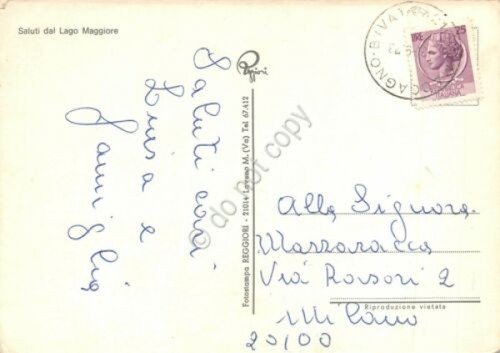 Saluti dal Lago Maggiore
Reggiori
LIRE 25
CAGNO·B (VA)
Saluti cari
Luisa e
famiglia
Fotostampa REGGIORI - 21014 Laveno M. (Va) Tel 67.412
© do not copy
Alla Signora
Mazzaracca
Via Rasori 2
Milano
20100
Riproduzione vietata